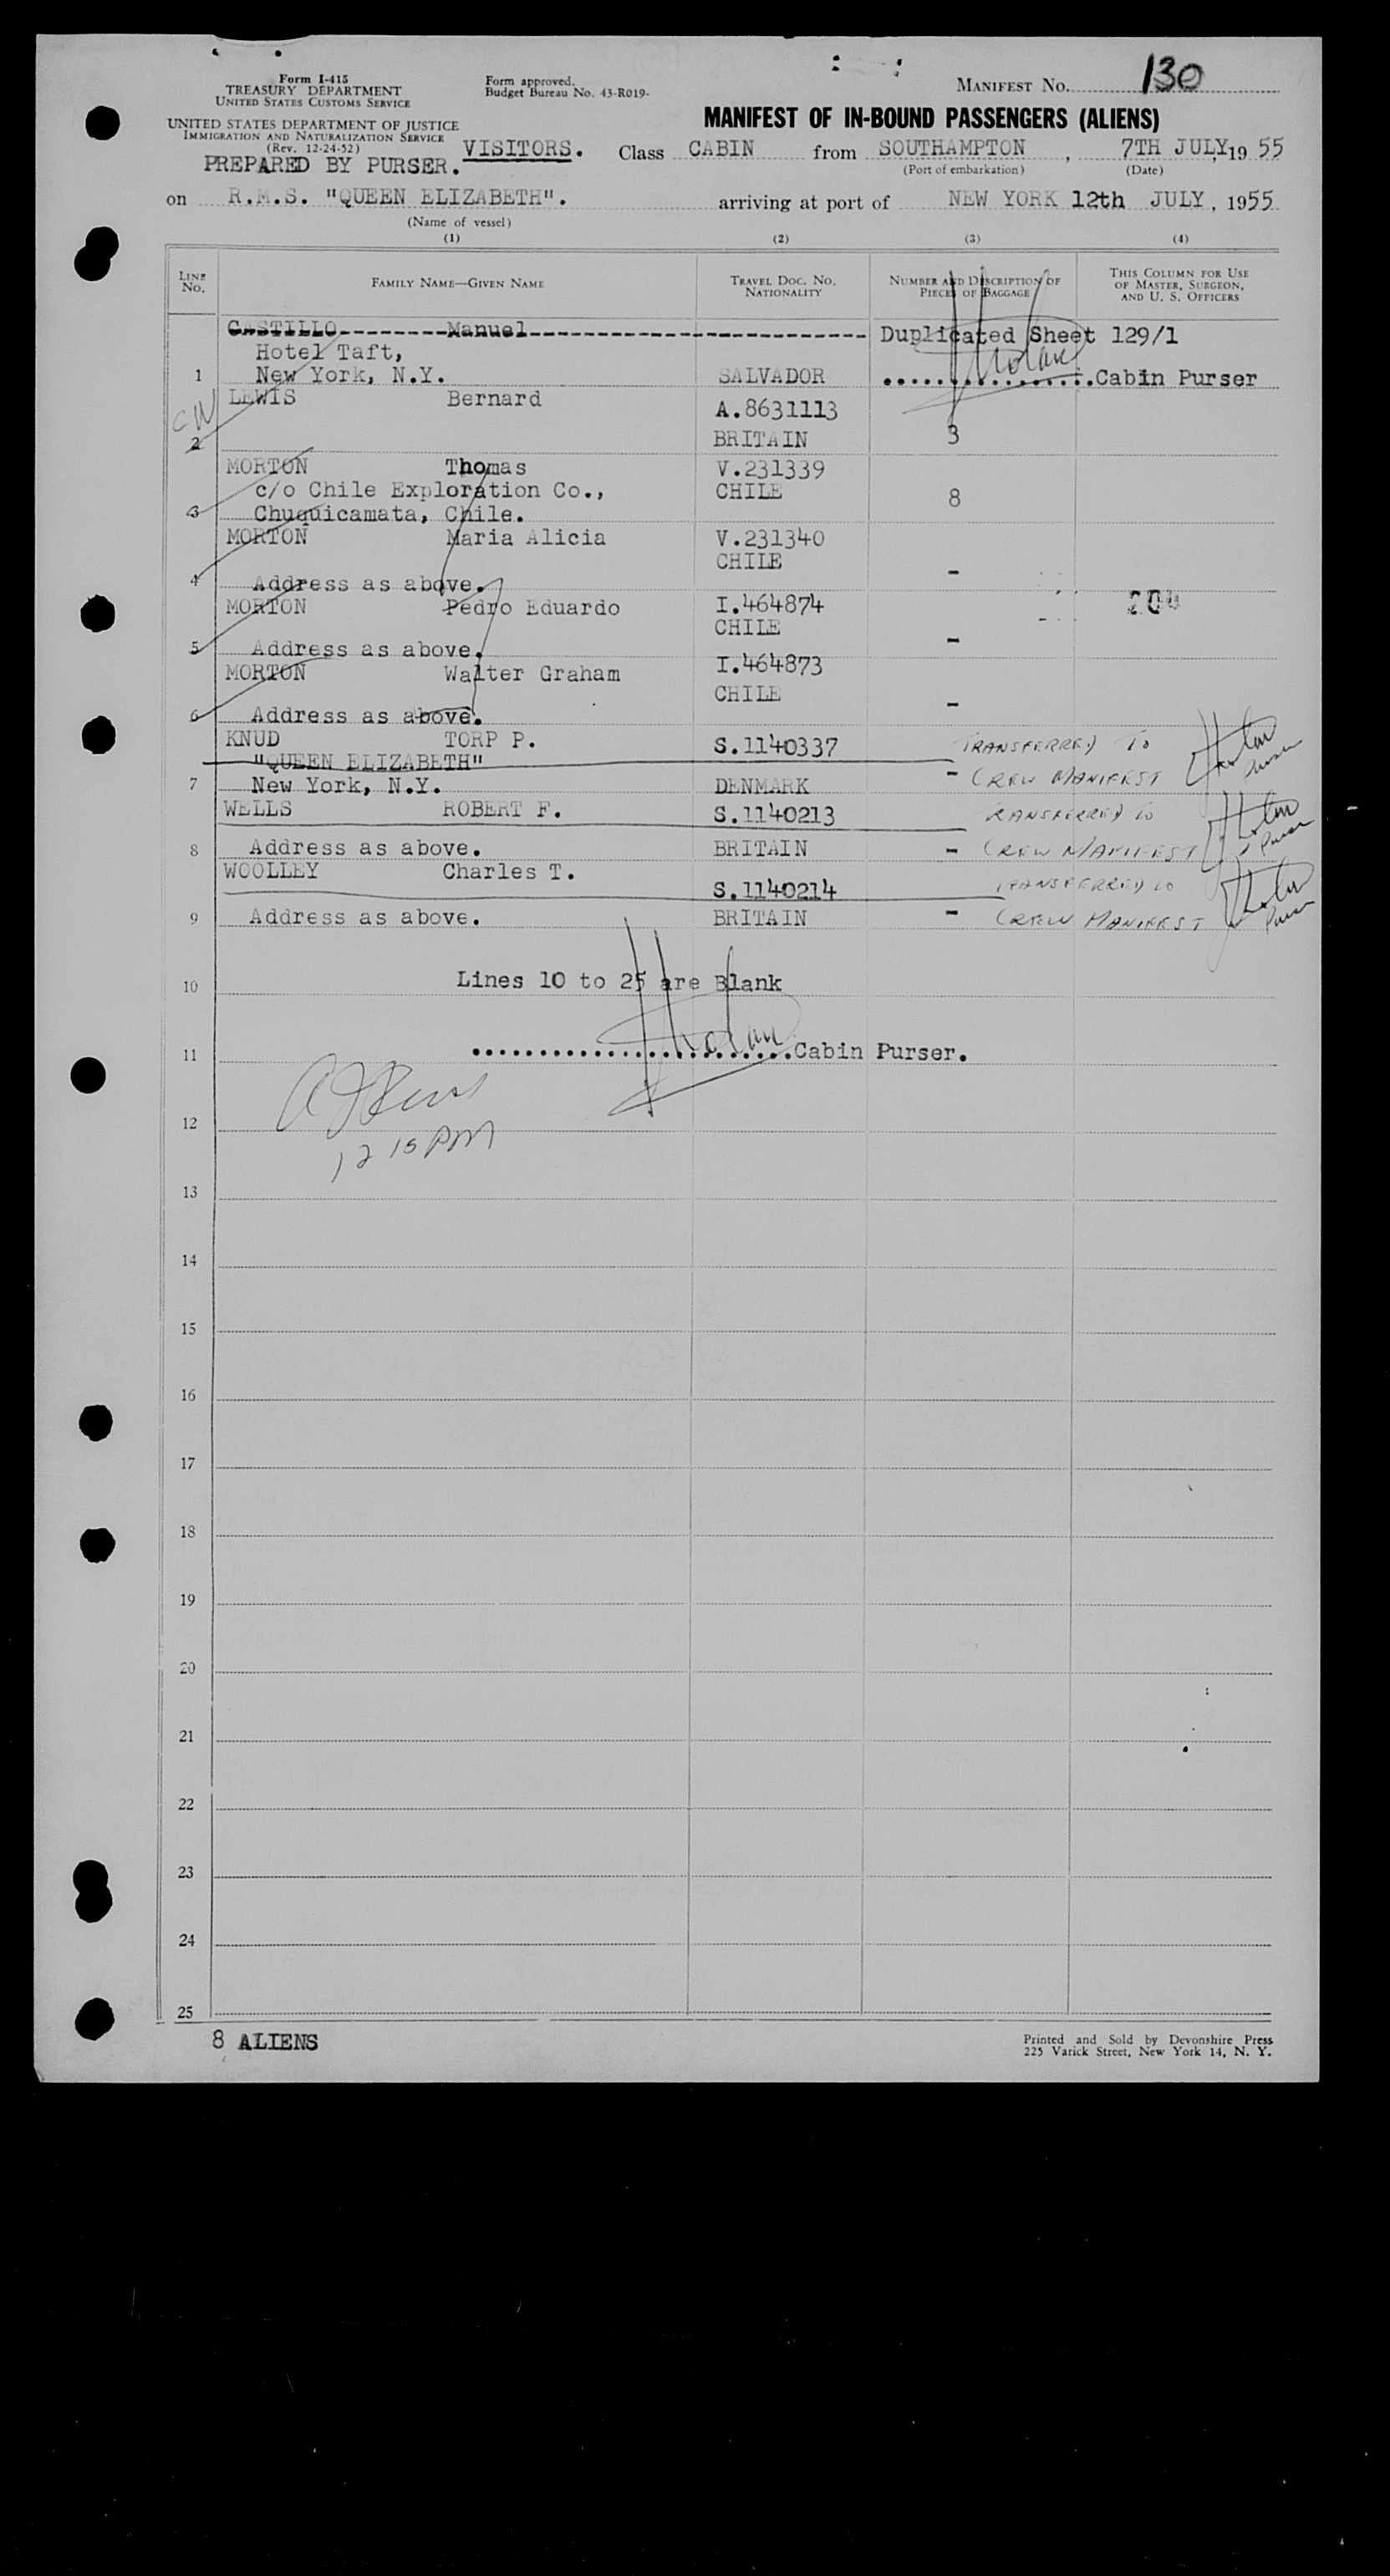 Form I-415
TREASURY DEPARTMENT
UNITED STATES CUSTOMS SERVICE
Form approved.
Budget Bureau No. 43-R019-
MANIFEST NO. 130
UNITED STATES DEPARTMENT OF JUSTICE
IMMIGRATION AND NATURALIZATION SERVICE
(Rev. 12-24-52)
MANIFEST OF IN-BOUND PASSENGERS (ALIENS)
PREPARED BY PURSER. VISITORS. Class CABIN from SOUTHAMPTON, 7TH JULY, 19 55
(Port of embarkation) (Date)
on R.M.S. "QUEEN ELIZABETH". arriving at port of NEW YORK 12th JULY, 1955
(Name of vessel)
(1) (2) (3) (4)
LINE NO. FAMILY NAME—GIVEN NAME TRAVEL DOC. NO. NATIONALITY NUMBER AND DESCRIPTION OF PIECES OF BAGGAGE THIS COLUMN FOR USE OF MASTER, SURGEON, AND U. S. OFFICERS
CASTILLO--------Manuel------------------------- Duplicated Sheet 129/1
Hotel Taft,
1 New York, N.Y. SALVADOR ................Cabin Purser
LEWIS Bernard A.8631113
2 BRITAIN 3
MORTON Thomas V.231339
c/o Chile Exploration Co., CHILE 8
3 Chuquicamata, Chile.
MORTON Maria Alicia V.231340
CHILE -
4 Address as above.
MORTON Pedro Eduardo I.464874
CHILE -
5 Address as above.
MORTON Walter Graham I.464873
CHILE -
6 Address as above.
KNUD TORP P. S.1140337 TRANSFERRED TO
"QUEEN ELIZABETH" - CREW MANIFEST Purser
7 New York, N.Y. DENMARK
WELLS ROBERT F. S.1140213 TRANSFERRED TO
8 Address as above. BRITAIN - CREW MANIFEST Purser
WOOLLEY Charles T. S.1140214 TRANSFERRED TO
9 Address as above. BRITAIN - CREW MANIFEST Purser
10 Lines 10 to 25 are Blank
11 ........................Cabin Purser.
12
12 15 PM
13
14
15
16
17
18
19
20
21
22
23
24
25
8 ALIENS
Printed and Sold by Devonshire Press
225 Varick Street, New York 14, N. Y.